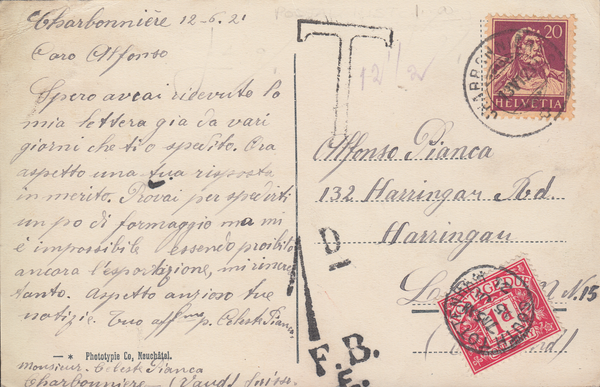 Charbonnière 12-6.21
Caro Alfonso
Spero avrai ricevuto la
mia lettera gia da vari
giorni che ti o spedito. Ora
aspetto una tua risposta
in merito. Provai per spedirti
un po di formaggio ma mi
è impossibile essendo proibito
ancora l'esportazione, mi rincre
tanto. Aspetto anzioso tue
notizie. Tuo aff p. Celeste Pianca
Monsieur Celeste Pianca
Charbonnière (Vaud) Suisse
— * Phototypie Co, Neuchâtel.
T
20
HELVETIA
Alfonso Pianca
132 Harringau Rd.
Harringau
N. 15
D
F. B.
POSTAGE DUE